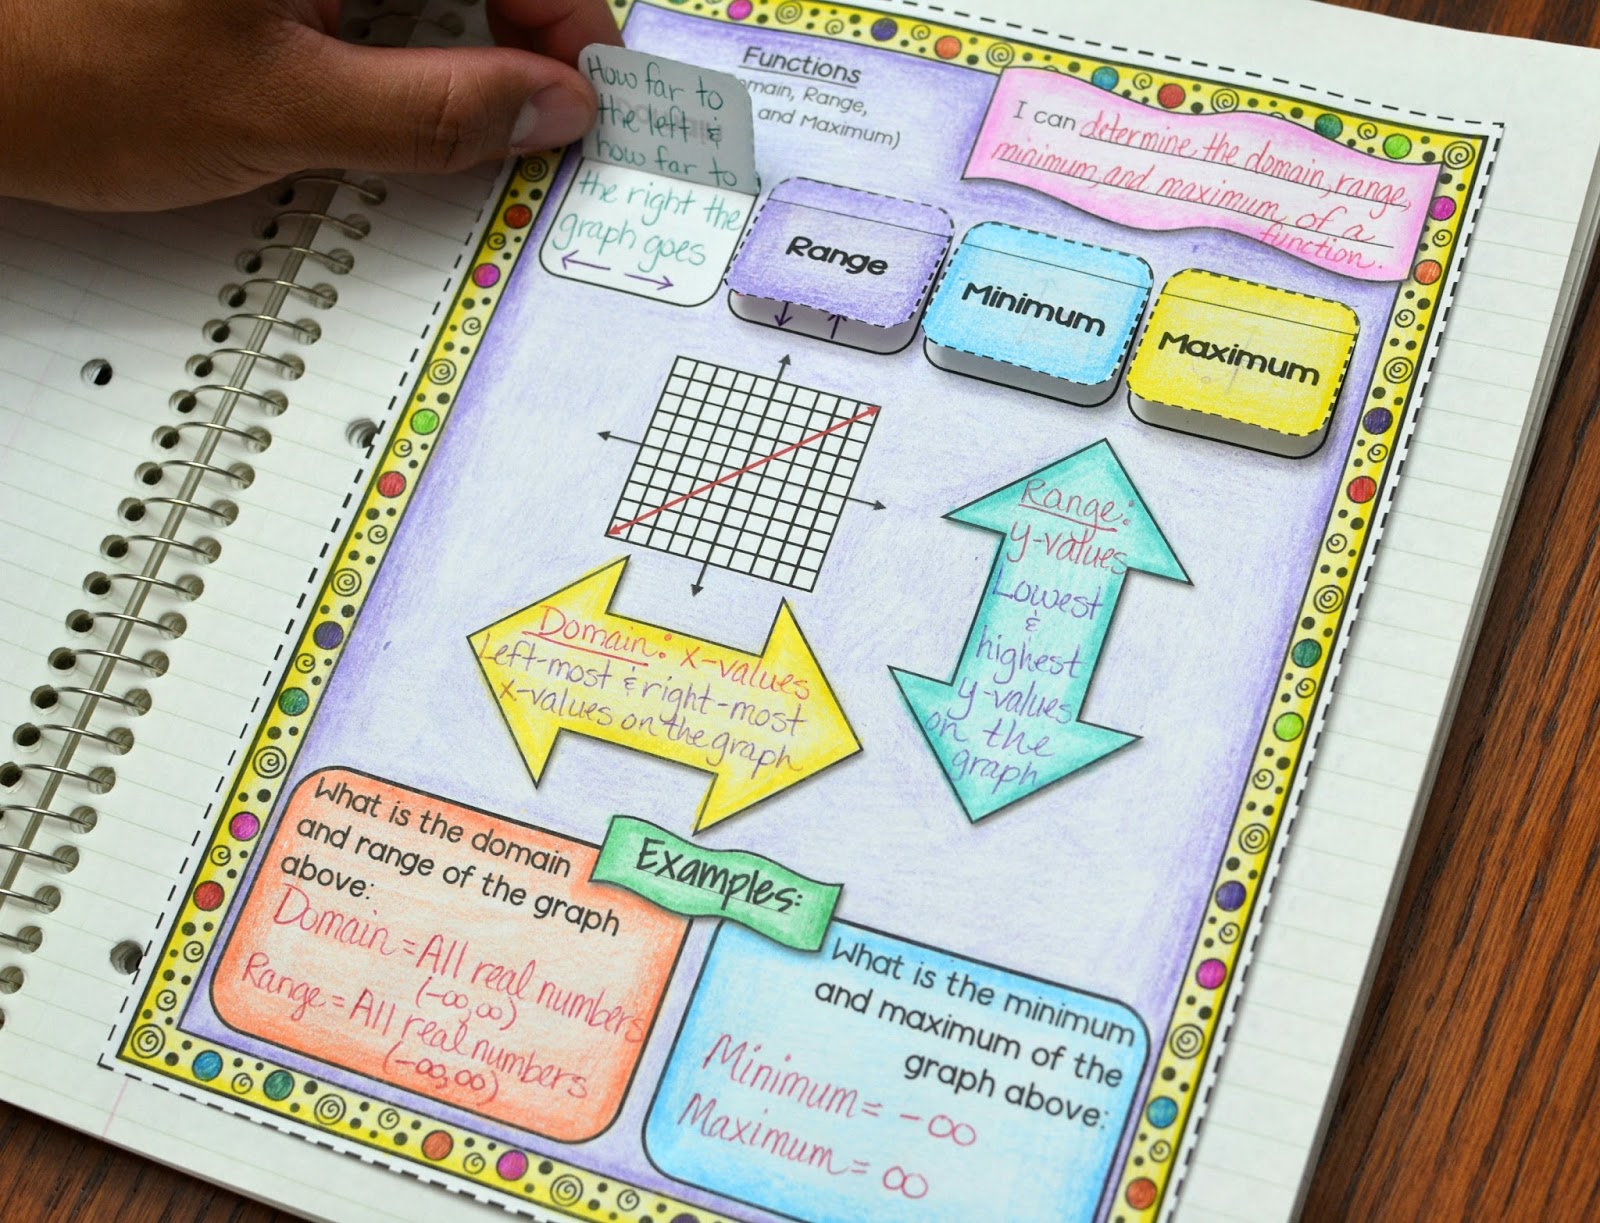 Functions
omain, Range,
and Maximum)
I can determine the domain, range,
minimum, and maximum of a
function.
How far to
the left &
how far to
the right the
graph goes
Range
Minimum
Maximum
Range:
y-values
Lowest
&
highest
y-values
on the
graph
Domain: x-values
Left-most & right-most
x-values on the graph
Examples:
What is the domain
and range of the graph
above:
Domain = All real numbers
(-∞,∞)
Range = All real numbers
(-∞,∞)
What is the minimum
and maximum of the
graph above:
Minimum = -∞
Maximum = ∞